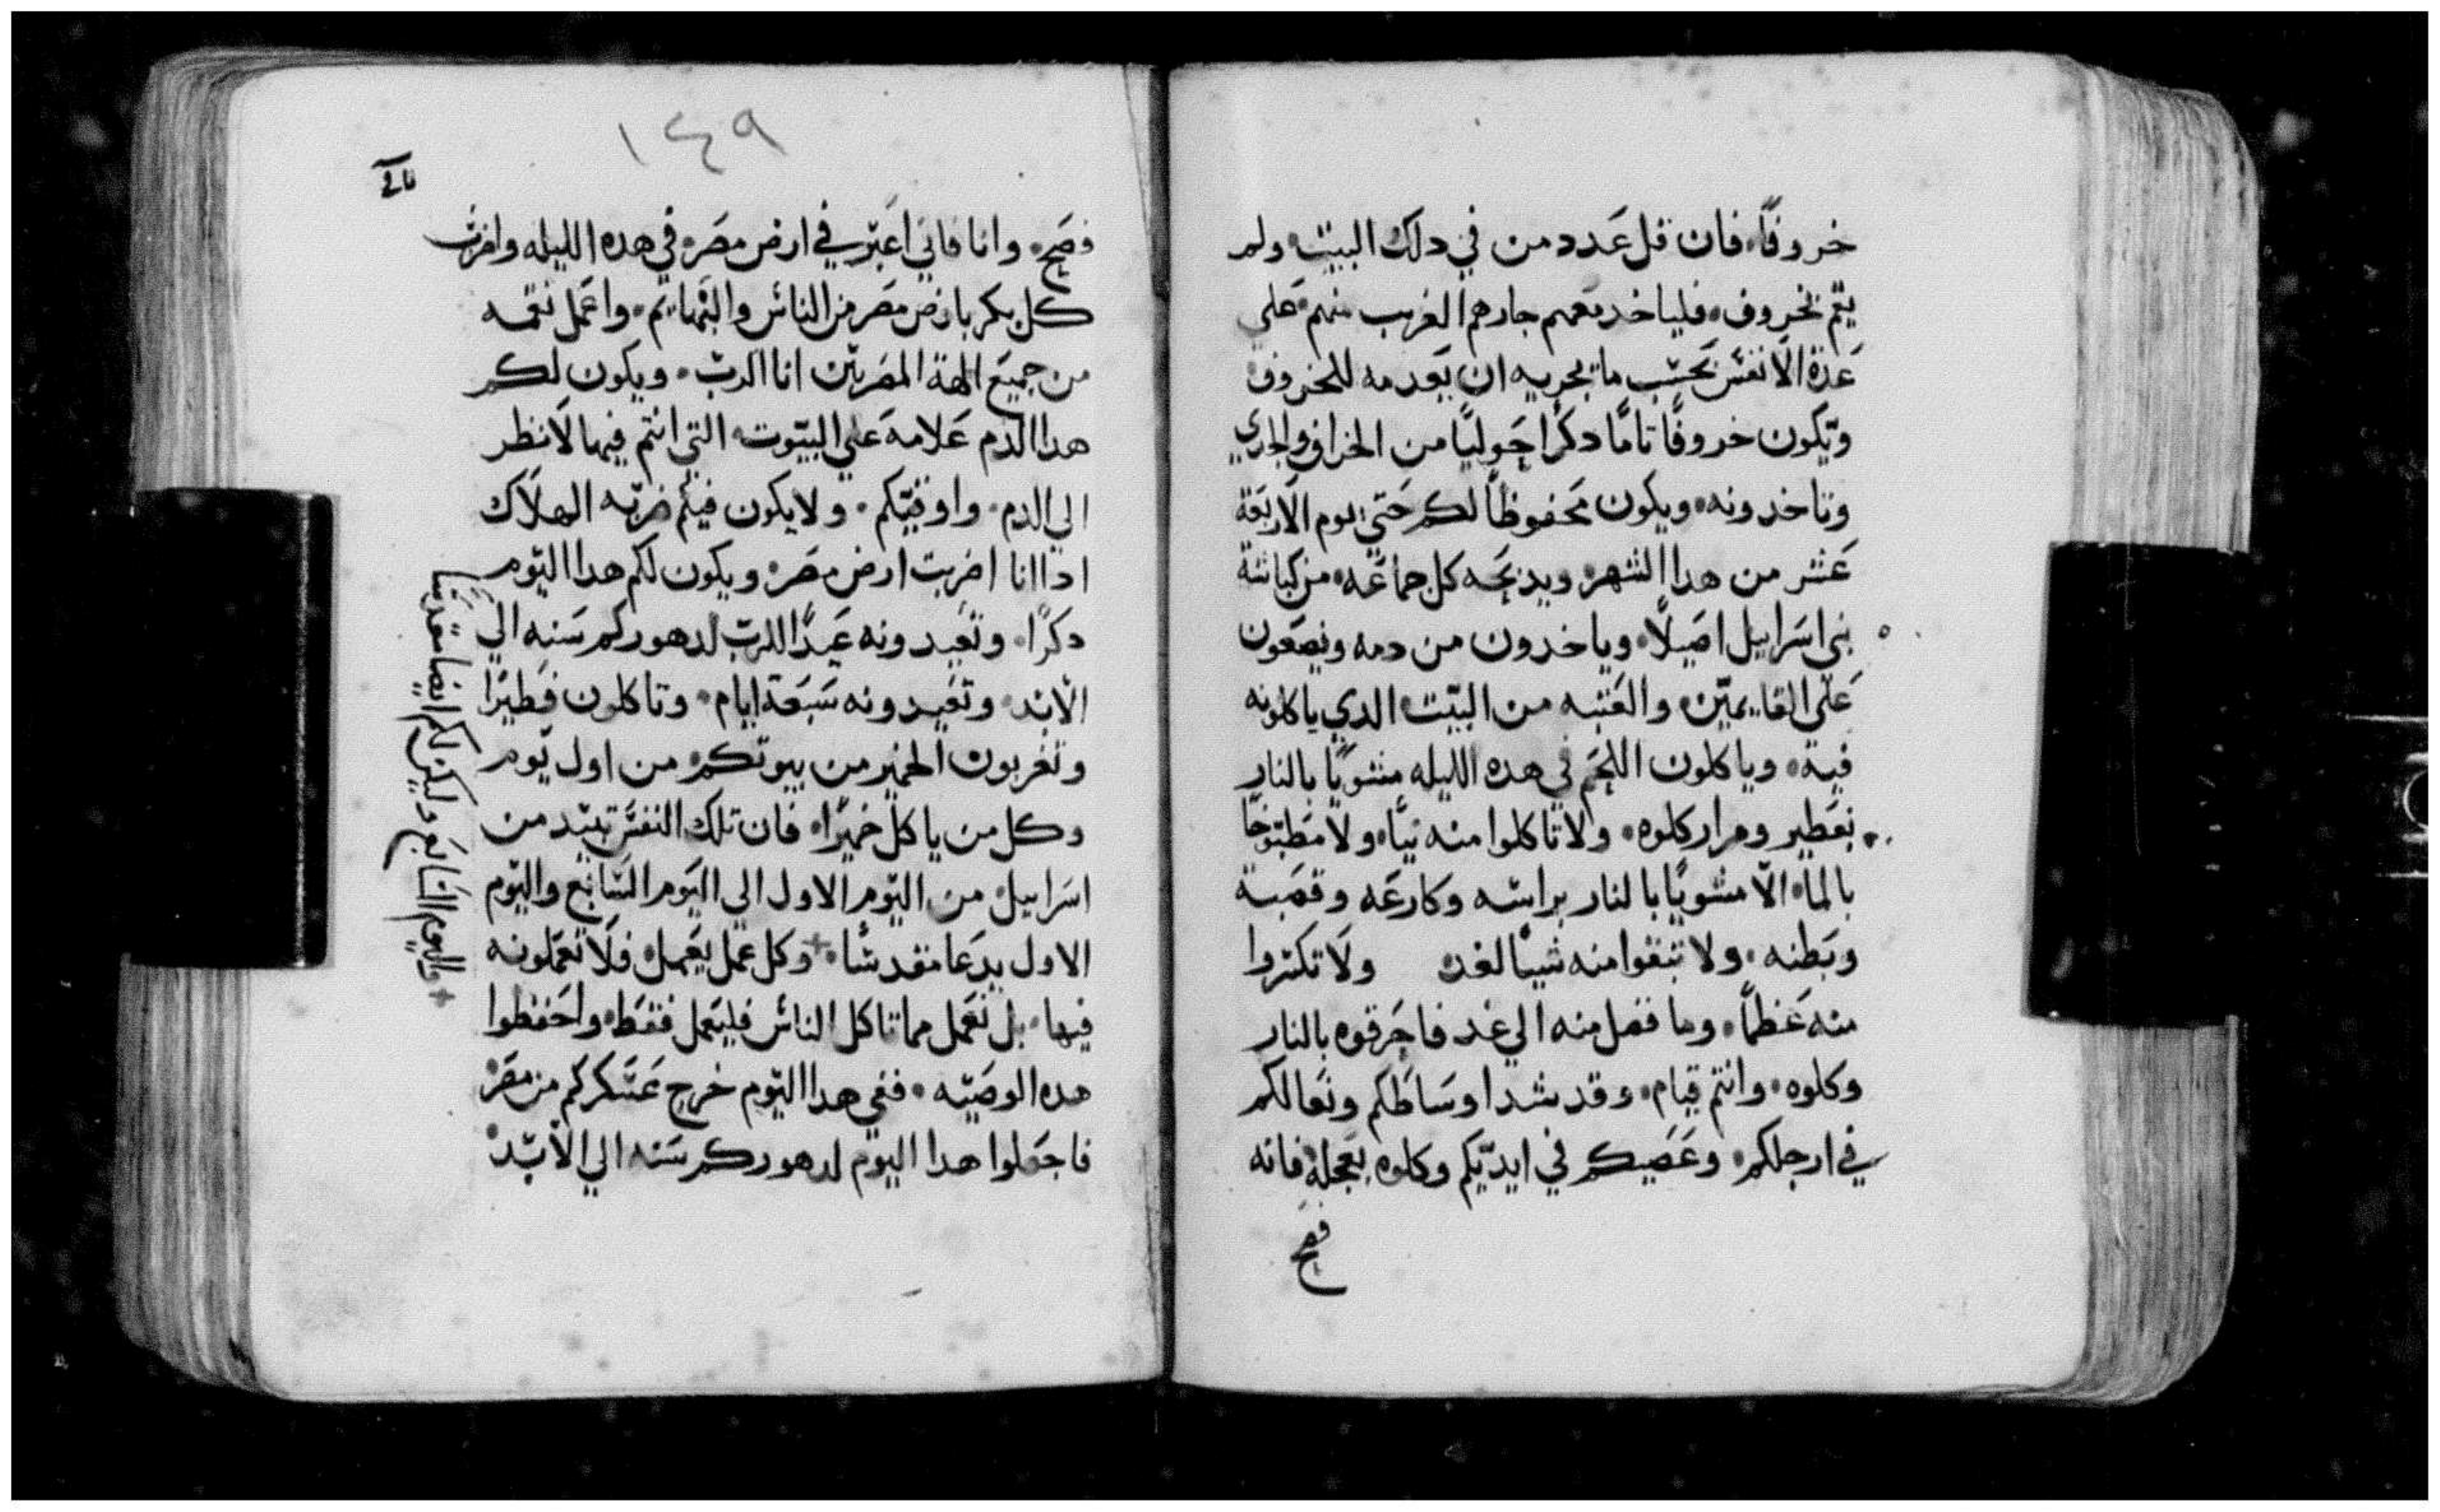 خروفًا. فان قل عَدد من في دلك البيت ولم
يتم بخروف. فلياخد معهم جارهم القريب منهم عَلي
عَدة الانفسْ بحسْب ما يجزيه ان يعد مه للخروف
ويَكون خروفًا تامًا دكرًا حَوليًا من الخراف والجدي
وتاخدونه. ويكون مَحفوظًا لكم حَتي يوم الاربَعة
عَشر من هدا الشهر ويدبحَه كل جماعَه. من كباشة
بني اسَراييل اصَيلًا. وياخدون من دمه ويصَعون
عَلي القايمتين والعَتبه من البيت الدي ياكلونه
فيه. وياكلون اللحَم في هده الليله مشويًا بالنار
بفَطير ومرار كلوه. ولا تاكلوا منه نيًا. ولا مَطبوخًا
بالما. الا مشويًا بالنار براسْه وكارعَه وقصَبة
وبَطنه. ولا تبقوا منه شيًا لغد ولَا تكسَروا
منه عَظمًا. وما فضل منه الي غد فاحَرقوه بالنار
وكلوه. وانتم قيام. وقد شد اوسَاطكم ونعَالكم
في ارجلكم. وعَصَيكم في ايديكم وكلوه بعَجله فانه
فصح
١٤٩
فصَح. وانا فاني اعَبر في ارض مصَر في هده الليله واضرب
كل بكر بارض مصَر من الناسْ والبَهايم. واعَمل نقمه
من جميَع الهة المصَريين انا الرب. ويكون لكم
هدا الدم عَلامه عَلي البيوت التي انتم فيها لَانظر
الي الدم. واوقيكم. ولا يكون فيكم ضربه الهلَاك
ادا انا اضربت ارض مصَر. ويكون لكم هدا اليوم
دكرًا. وتعَيدونه عَيدًا للرب لدهوركم سَنه الي
الابد. وتعَيدونه سَبعَة ايام. وتاكلون فَطيرًا
وتغربون الخمير من بيوتكم من اول يوم
وكل من ياكل خميرًا. فان تلك النفسْ تبيد من
اسَراييل من اليوم الاول الي اليَوم السَابع واليوم
الاول يدعَا مقدسًا. + وكل عَمل يعَمل. فلَا تعَملونه
فيها. بل تعَمل مما تاكل الناسْ فليعَمل فقَط. واحَفظوا
هده الوصَيه. ففي هدا اليوم خرج عَسْكركم من مصَر
فاجعَلوا هدا اليوم لدهوركم سَنه الي الابد
+ واليوم السَابع وليكن لكم ايضا مقدسَا